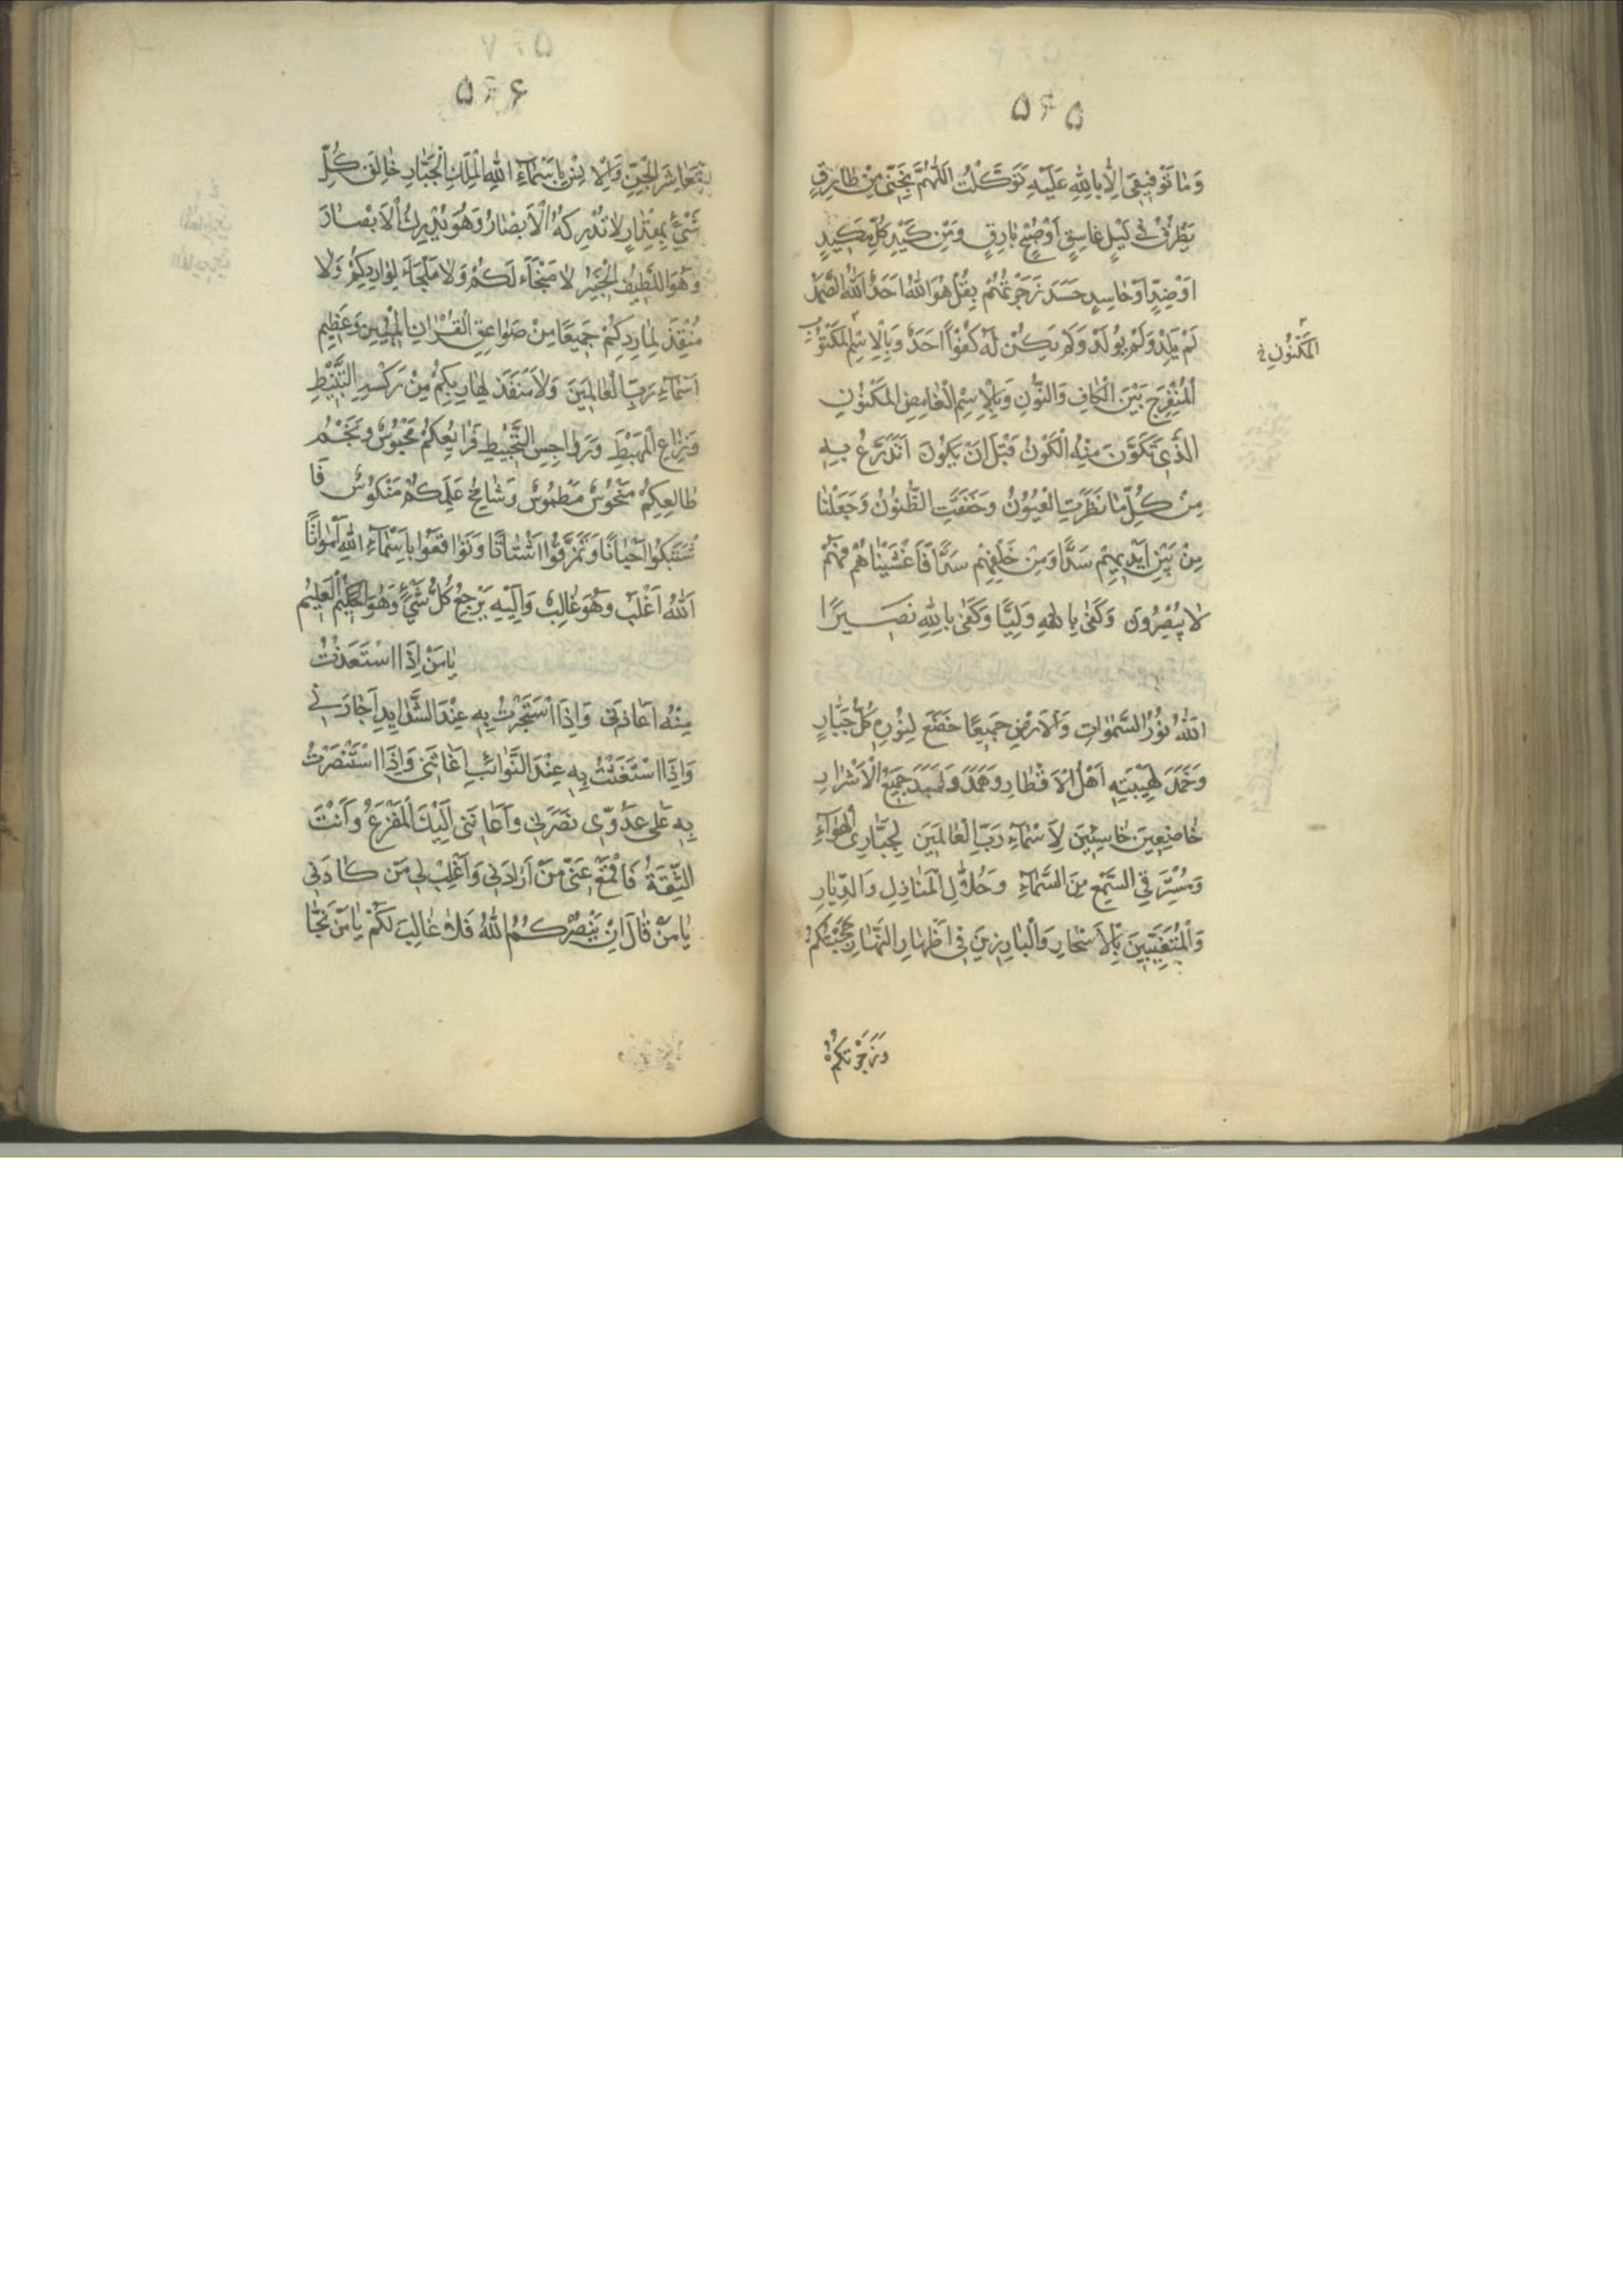 ۵۶۵
وَمٰا تَوْفيقي اِلّٰا بِاللّٰهِ عَلَيْهِ تَوَكَّلْتُ اَللّٰهُمَّ نَجِّني مِنْ طٰارِقٍ
يَطْرُقُ في لَيْلٍ غٰاسِقٍ اَوْ صُبْحٍ بٰارِقٍ وَمِنْ كَيْدِ كُلِّ مَكيدٍ
اَوْ ضِدٍّ اَوْ حٰاسِدٍ حَسَدَ زَجَرْتُهُمْ بِقُلْ هُوَ اللّٰهُ اَحَدٌ اَللّٰهُ الصَّمَدُ
لَمْ يَلِدْ وَلَمْ يُولَدْ وَلَمْ يَكُنْ لَهُ كُفُوًا اَحَدٌ وَبِالْاِسْمِ الْمَكْنُونِ
الْمَكْنُونِ خ
الْمُنْفَرِجِ بَيْنَ الْكٰافِ وَالنُّونِ وَبِالْاِسْمِ الْغٰامِضِ الْمَكْنُونِ
الَّذي تَكَوَّنَ مِنْهُ الْكَوْنُ قَبْلَ اَنْ يَكُونَ اَتَدَرَّعُ بِهِ
مِنْ كُلِّ مٰا نَظَرَتِ الْعُيُونُ وَخَفَقَتِ الظُّنُونُ وَجَعَلْنٰا
مِنْ بَيْنِ اَيْديهِمْ سَدًّا وَمِنْ خَلْفِهِمْ سَدًّا فَاَغْشَيْنٰاهُمْ فَهُمْ
لٰا يُبْصِرُونَ وَكَفٰى بِاللّٰهِ وَلِيًّا وَكَفٰى بِاللّٰهِ نَصيرًا
اَللّٰهُ نُورُ السَّمٰوٰاتِ وَالْاَرْضِ جَميعًا خَضَعَ لِنُورِهِ كُلُّ جَبّٰارٍ
وَخَمَدَ لِهَيْبَتِهِ اَهْلُ الْاَقْطٰارِ وَهَمَدَ وَلَبَدَ جَميعُ الْاَشْرٰارِ
خٰاضِعينَ خٰاسِئينَ لِاَسْمٰاءِ رَبِّ الْعٰالَمينَ لِجَبّٰارِي الْهَوٰاءِ
وَمُسْتَرِقِي السَّمْعِ مِنَ السَّمٰاءِ وَحُلّٰالِ الْمَنٰازِلِ وَالدِّيٰارِ
وَالْمُتَغَيِّبينَ بِالْاَسْحٰارِ وَالْبٰارِزينَ في اَظْهٰارِ النَّهٰارِ حَجَبْتُكُمْ
وَزَجَرْتُكُمْ
۵۶۶
مَعٰاشِرَ الْجِنِّ وَالْاِنْسِ بِاَسْمٰاءِ اللّٰهِ الْمَلِكِ الْجَبّٰارِ خٰالِقِ كُلِّ
شَيْءٍ بِمِقْدٰارٍ لٰا تُدْرِكُهُ الْاَبْصٰارُ وَهُوَ يُدْرِكُ الْاَبْصٰارَ
وَهُوَ اللَّطيفُ الْخَبيرُ لٰا مَنْجٰاءَ لَكُمْ وَلٰا مَلْجَاءَ لِوٰارِدِكُمْ وَلٰا
مُنْقِذَ لِمٰارِدِكُمْ جَميعًا مِنْ صَوٰاعِقِ الْقُرْاٰنِ الْمُبينِ وَعَظيمِ
اَسْمٰاءِ رَبِّ الْعٰالَمينَ وَلٰا مَنْفَذَ لِهٰارِبِكُمْ مِنْ رَكْسَةِ التَّثْبيطِ
وَنِزٰاعِ الْمَهْبَطِ وَرَوٰاجِسِ التَّخْبيطِ فَرٰائِعُكُمْ مَحْبُوسٌ وَنَجْمُ
طٰالِعِكُمْ مَنْحُوسٌ مَطْمُوسٌ وَشٰامِخُ عَلَمِكُمْ مَنْكُوسٌ فَا
شْتَبِكُوا اَحْيٰانًا وَتَمَزَّقُوا اَشْتٰاتًا وَتَوٰاقَعُوا بِاَسْمٰاءِ اللّٰهِ اَمْوٰاتًا
اَللّٰهُ اَغْلَبُ وَهُوَ غٰالِبٌ وَاِلَيْهِ يَرْجِعُ كُلُّ شَيْءٍ وَهُوَ الْحَكيمُ الْعَليمُ
يٰا مَنْ اِذَا اسْتَعَذْتُ
مِنْهُ اَعٰاذَني وَاِذَا اسْتَجَرْتُ بِهِ عِنْدَ الشَّدٰايِدِ اَجٰارَني
وَاِذَا اسْتَغَثْتُ بِهِ عِنْدَ النَّوٰائِبِ اَغٰاثَني وَاِذَا اسْتَنْصَرْتُ
بِهِ عَلٰى عَدُوّي نَصَرَني وَاَعٰانَني اِلَيْكَ الْمَفْزَعُ وَاَنْتَ
الثِّقَةُ فَاقْمَعْ عَنّي مَنْ اَرٰادَني وَاَغْلِبْ لي مَنْ كٰادَني
يٰا مَنْ قٰالَ اِنْ يَنْصُرْكُمُ اللّٰهُ فَلٰا غٰالِبَ لَكُمْ يٰا مَنْ نَجّٰا